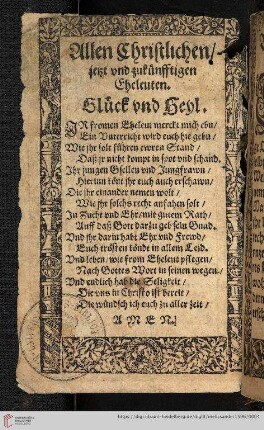 Allen Christlichen/
jetzt vnd zukünfftigen
Eheleuten.
Glück vnd Heyl.
IR fromen Eheleut merckt mich ebn/
Ein Vnterricht wird euch hie gebn/
Wie jhr solt führen ewren Stand/
Daß jr nicht kompt in spot vnd schand.
Ihr jungen Gsellen vnd Jungfrawn/
Hierinn könt jhr euch auch erschawn/
Die jhr einander nemen wolt/
Wie jhr solchs recht anfahen solt/
In Zucht vnd Ehr/mit gutem Rath/
Auff daß Got darzu geb sein Gnad.
Vnd jhr darin habt Ehr vnd Frewd/
Euch trösten könde in allem Leid.
Vnd leben/wie from Eheleut pflegen/
Nach Gottes Wort in seinen wegen.
Vnd endlich hab die Seligkeit/
Die vns in Christo ist bereit/
Die wündsch ich euch zu aller zeit/
A M E N.